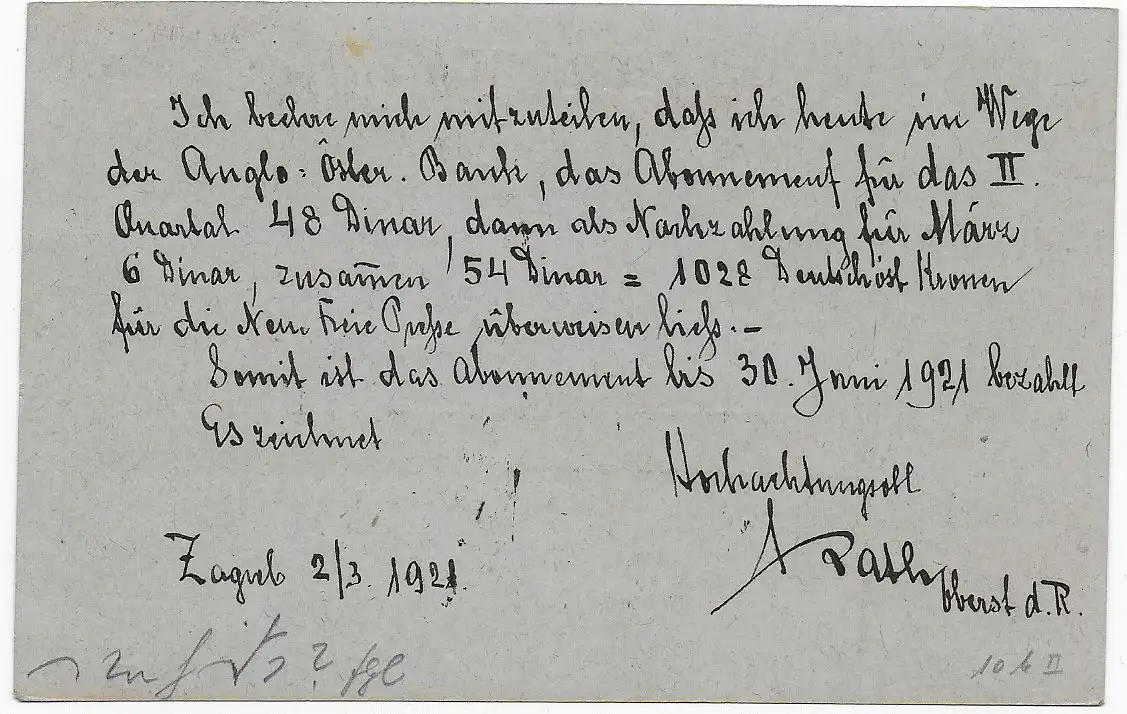 Ich beehre mich mitzuteilen, daß ich heute im Wege
der Anglo-Öster. Bank, das Abonnement für das II.
Quartal 48 Dinar, dann als Nachzahlung für März
6 Dinar, zusam̄en 54 Dinar = 1028 Deutschöst Kronen
für die Neue Freie Presse überweisen ließ. –
Somit ist das Abonnement bis 30. Juni 1921 bezahlt
Es zeichnet
Hochachtungsvoll
Rath
Oberst d. R.
Zagreb 2/3. 1921.